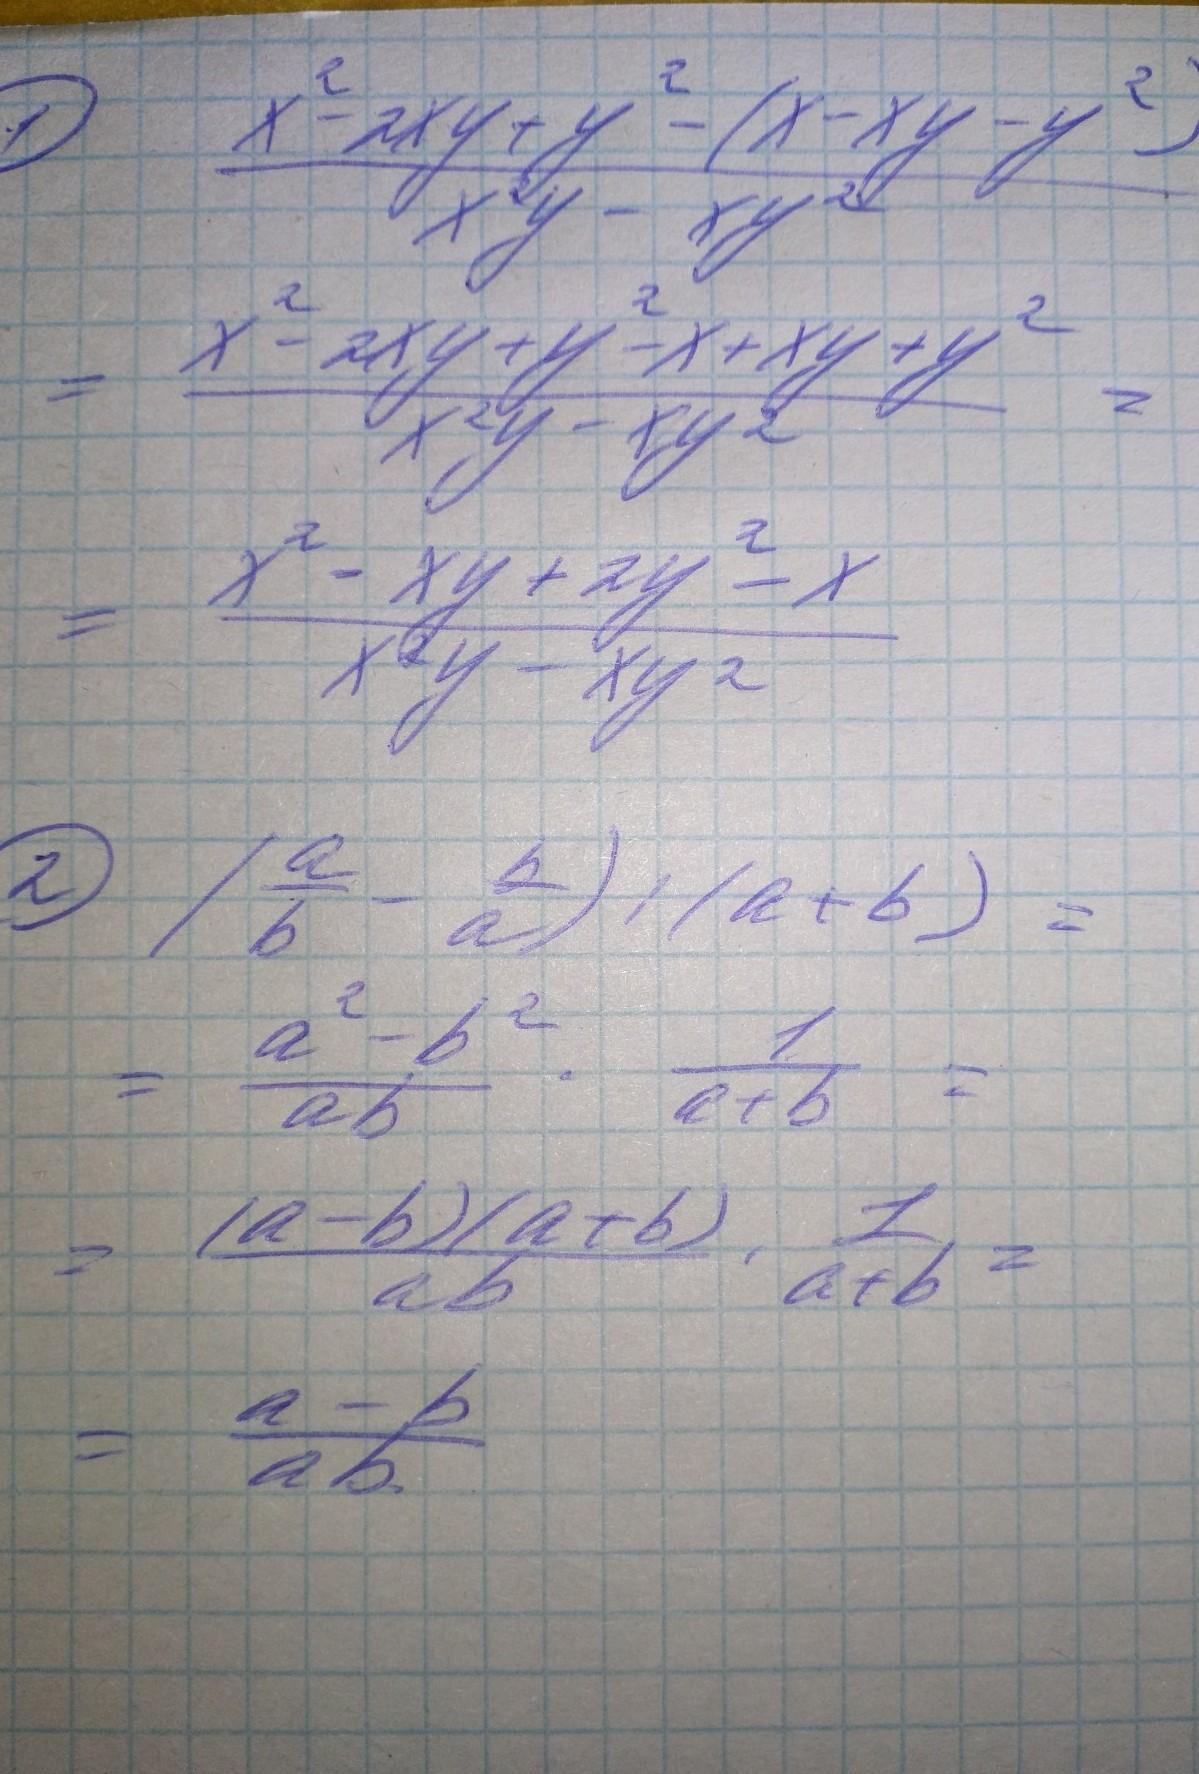 1) (x² - 2xy + y² - (x - xy - y²)) / (x²y - xy²)
= (x² - 2xy + y² - x + xy + y²) / (x²y - xy²) =
= (x² - xy + 2y² - x) / (x²y - xy²)
2) (a/b - b/a) : (a + b) =
= (a² - b²)/(ab) · 1/(a+b) =
= ((a-b)(a+b))/(ab) · 1/(a+b) =
= (a - b)/(ab)